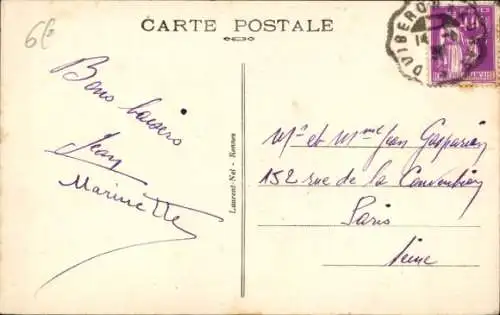 CARTE POSTALE
6f
Bons baisers
Jean
Marinette
Laurent-Nel - Rennes
Mr et Mme Jean Gasparian
152 rue de la Convention
Paris
Seine
QUIBERON